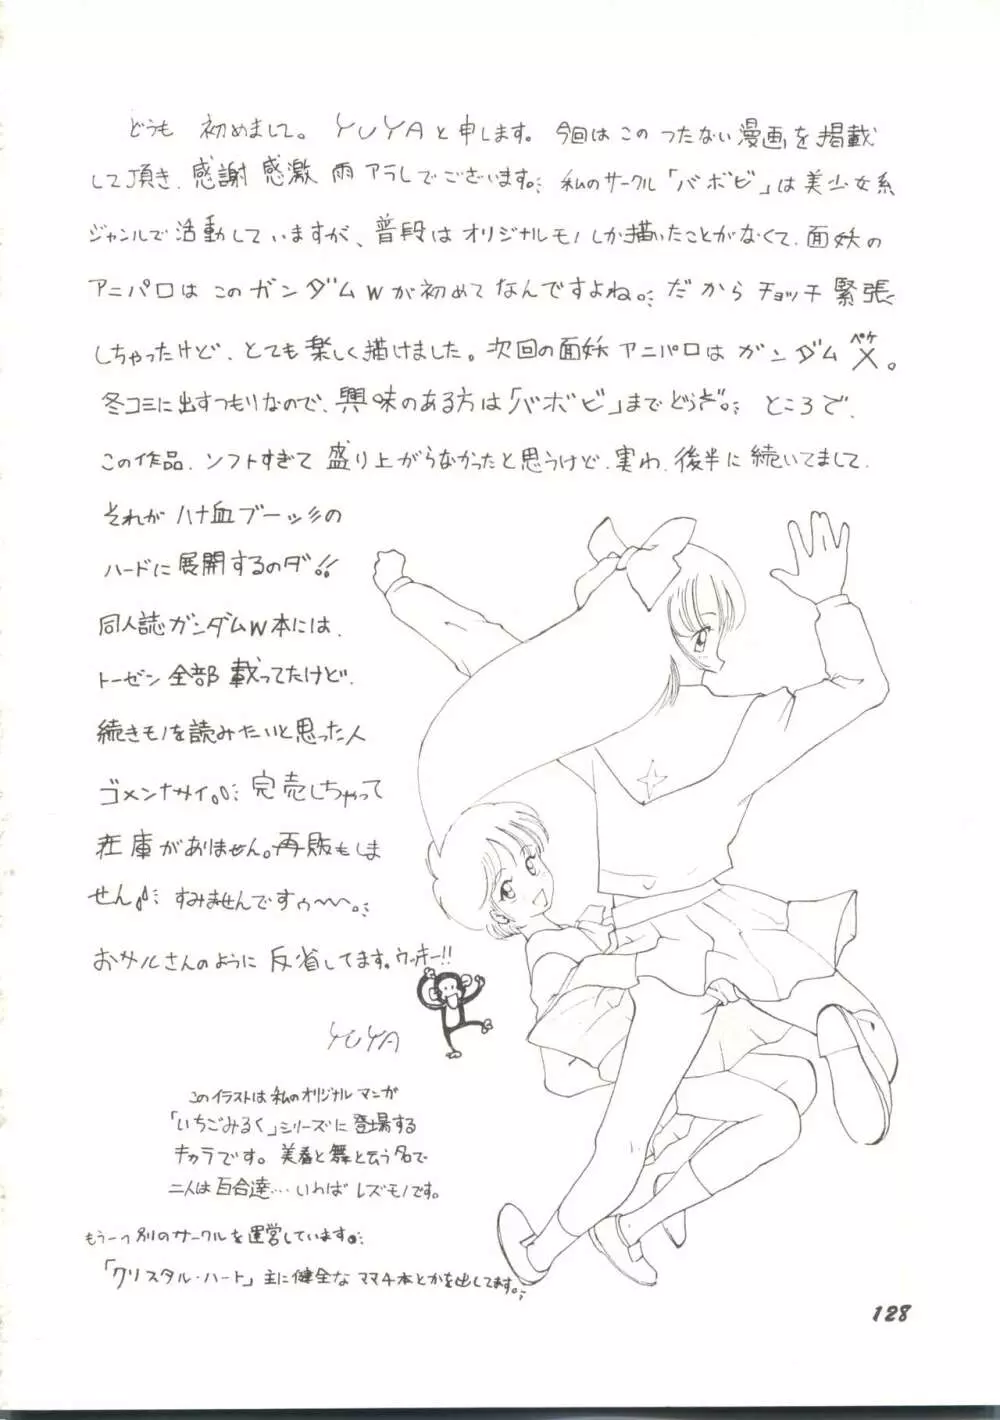 どうも 初めまして。 YUYAと申します。 今回はこのつたない漫画を掲載
して頂き、感謝 感激 雨アラレでございます。 私のサークル「バボビ」は美少女系
ジャンルで活動していますが、普段はオリジナルモノしか描いたことがなくて、面妖の
アニパロはこのガンダムWが初めてなんですよね。だからチョッチ緊張
しちゃったけど、とても楽しく描けました。次回の面妖アニパロはガンダムX。
ペケ
冬コミに出すつもりなので、興味のある方は「バボビ」までどうぞ。 ところで、
この作品、ソフトすぎて盛り上がらなかったと思うけど、実わ、後半に続いてまして、
それがハナ血ブーッの
ハードに展開するのダ!!
同人誌ガンダムW本には、
トーゼン全部載ってたけど、
続きモノを読みたいと思った人
ゴメンナサイ。完売しちゃって
在庫がありません。再販もしま
せん。すみませんですぅ〜〜。
おサルさんのように反省してます。ウッキー!!
YUYA
このイラストは私のオリジナルマンガ
「いちごみるく」シリーズに登場する
キャラです。と舞と云う名で
二人は百合達…いわばレズモノです。
もう一つ別のサークルを運営しています。
「クリスタル・ハート」主に健全なママ4本とかを出してます。
128